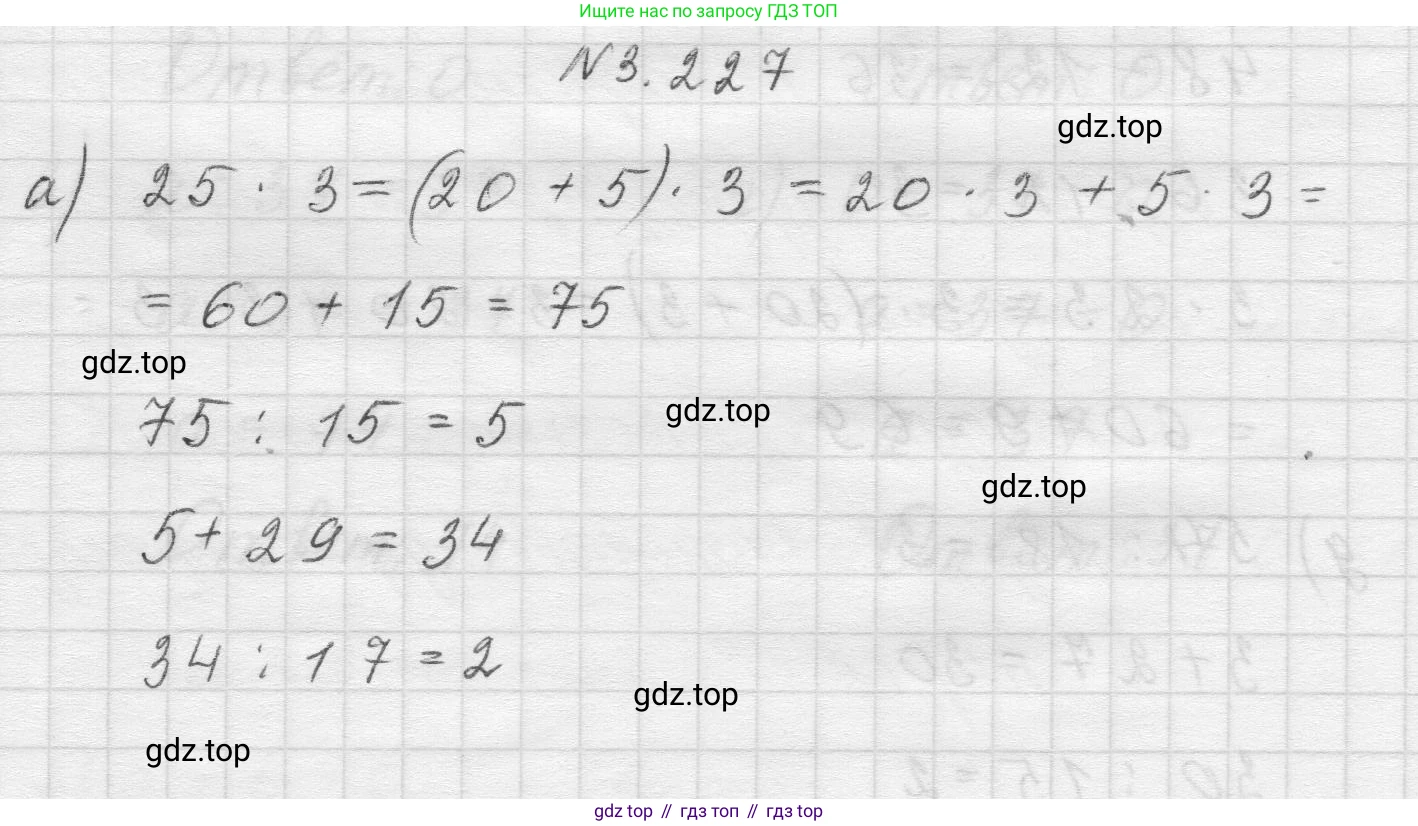 Ищите нас по запросу ГДЗ ТОП
N 3.227
gdz.top
а) 25 · 3 = (20 + 5) · 3 = 20 · 3 + 5 · 3 =
= 60 + 15 = 75
gdz.top
75 : 15 = 5
gdz.top
gdz.top
5 + 29 = 34
34 : 17 = 2
gdz.top
gdz.top
gdz top // гдз топ // gdz top